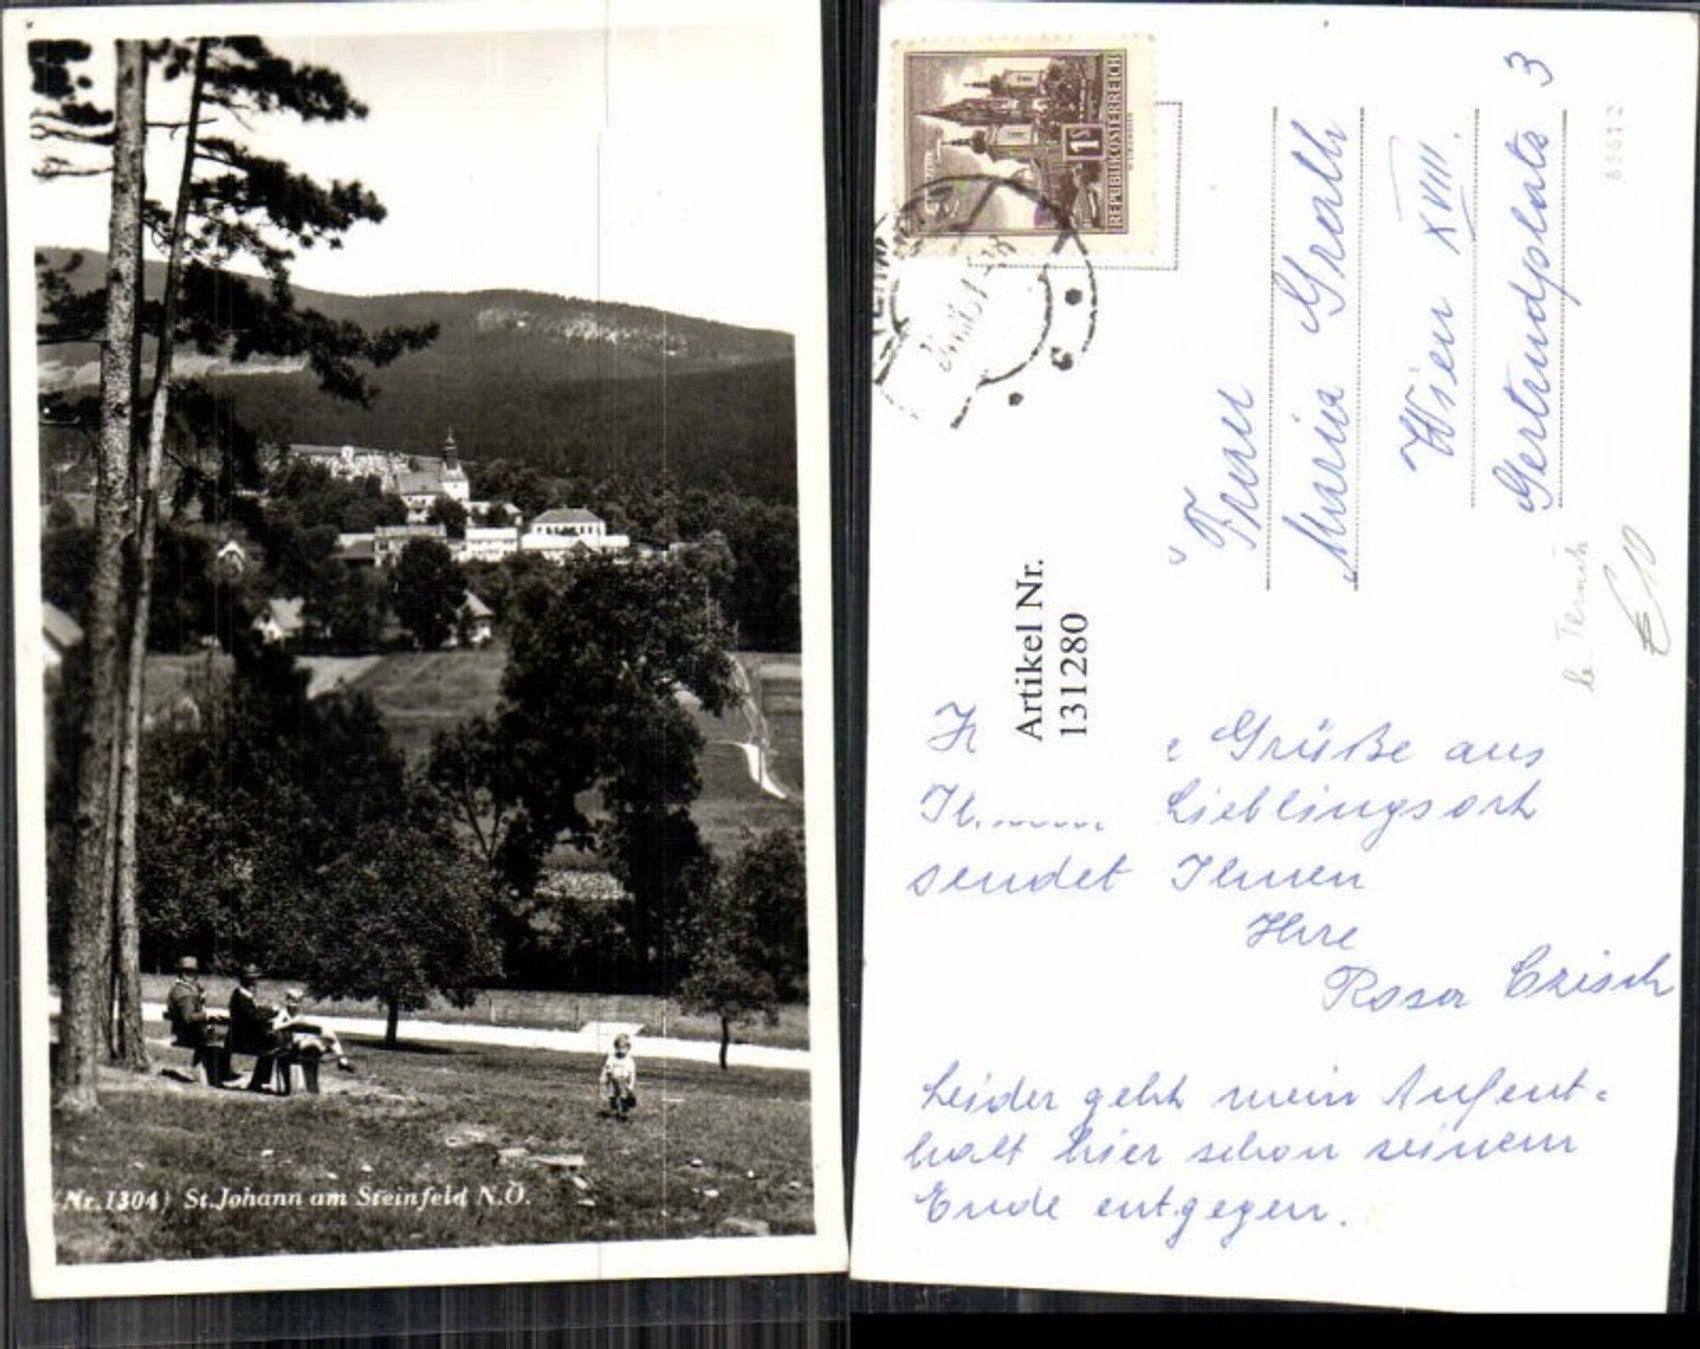 (Nr.1304) St.Johann am Steinfeld N.Ö.
REPUBLIK ÖSTERREICH
1 S
Frau
Maria Grath
Wien XVIII.
Gertrudplatz 3
86612
Artikel Nr.
131280
Grüße aus
Lieblingsort
sendet Ihnen
Ihre
Rosa Czisch
Leider geht mein Aufent=
halt hier schon seinem
Ende entgegen.